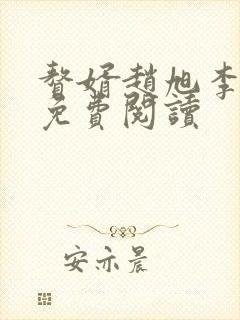 贅婿趙旭李
免費閱讀
安亦晨